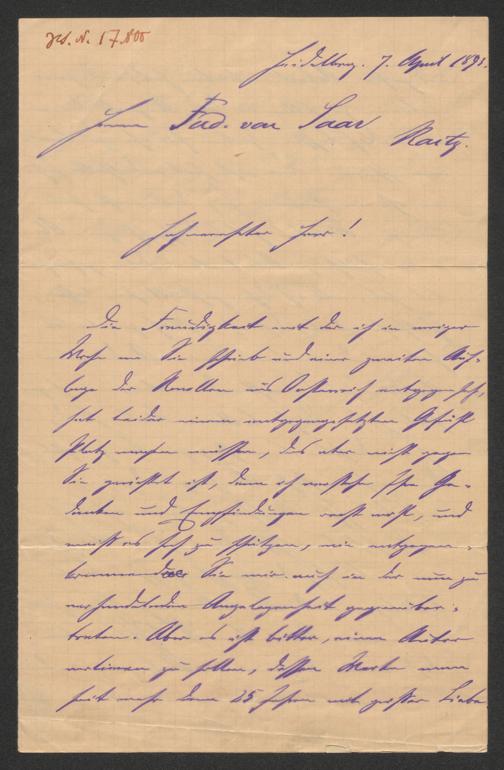 J. N. 17.800
Heidelberg. 7. April 1891.
Herrn Ferd. von Saar
Raitz.
Hochverehrter Herr!
Die Freudigkeit mit der ich in voriger
Woche an Sie schrieb und einer zweiten Auf-
lage der Novellen aus Oesterreich entgegensah,
hat leider einem entgegengesetzten Gefühl
Platz machen müssen, das aber nicht gegen
Sie gerichtet ist, denn ich verstehe Ihre Ge-
danken und Empfindungen recht wohl, und
weiß es hoch zu schätzen, wie entgegen-
kommend Sie mir auch in der nun zu
verhandelnden Angelegenheit gegenüber-
treten. Aber es ist bitter, einen Autor
verlieren zu sollen, dessen Werke man
seit mehr denn 25 Jahren mit großer Liebe